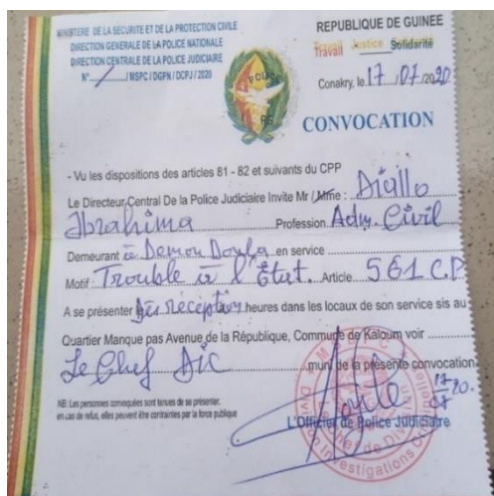 MINISTERE DE LA SECURITE ET DE LA PROTECTION CIVILE
DIRECTION GENERALE DE LA POLICE NATIONALE
DIRECTION CENTRALE DE LA POLICE JUDICIAIRE
N° / MSPC / DGPN / DCPJ / 2020
POLICE
REPUBLIQUE DE GUINEE
Travail Justice Solidarité
Conakry, le 17 / 07 / 2020
CONVOCATION
- Vu les dispositions des articles 81 - 82 et suivants du CPP
Le Directeur Central De la Police Judiciaire Invite Mr / Mme : Diallo
Ibrahima Profession Adm. Civil
Demeurant à Demoudoula en service
Motif : Trouble à l'État. Article 561 C.P
A se présenter dès réception heures dans les locaux de son service sis au
Quartier Manque pas Avenue de la République, Commune de Kaloum voir
Le Chef DIC muni de la présente convocation
NB: Les personnes convoquées sont tenues de se présenter,
en cas de refus, elles peuvent être contraintes par la force publique
17/07/20.
L'Officier de Police Judiciaire